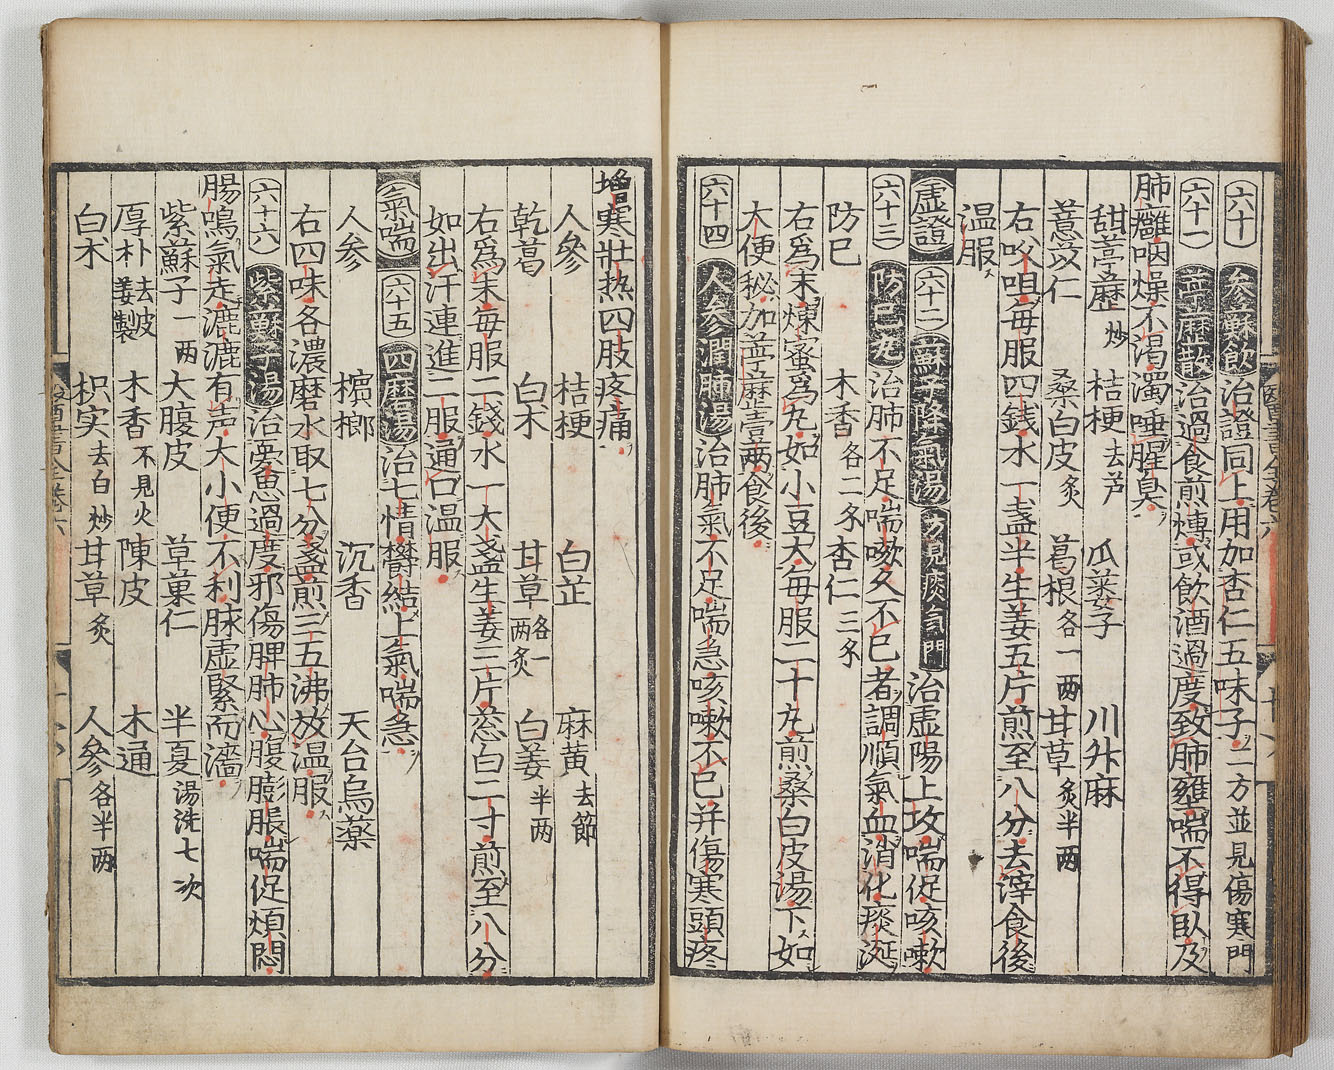 六十 參蘇飲 治證同上用加杏仁五味子二方並見傷寒門
六十一 葶藶散 治過食煎煿或飲酒過度致肺壅喘不得臥及
肺癰咽燥不渴濁唾腥臭
甜葶藶炒 桔梗去芦 瓜蔞子 川升麻
薏苡仁 桑白皮炙 葛根各一两 甘草炙半两
右㕮咀每服四錢水一盞半生姜五片煎至八分去滓食後
温服
虛證 六十二 蘇子降氣湯 方見痰氣門 治虛陽上攻喘促咳嗽
六十三 防已丸 治肺不足喘嗽久不已者調順氣血消化痰涎
防已 木香各二分 杏仁三分
右爲末煉蜜爲丸如小豆大每服二十丸煎桑白皮湯下如
大便秘加葶藶壹两食後
六十四 人參潤肺湯 治肺氣不足喘急咳嗽不已并傷寒頭疼
增寒壯热四肢疼痛
人參 桔梗 白芷 麻黄去節
乾葛 白术 甘草各一两炙 白姜半两
右爲末每服二錢水一大盞生姜三片葱白二寸煎至八分
如出汗連進二服通口温服
氣喘 六十五 四磨湯 治七情欝結上氣喘急
人參 檳榔 沉香 天台烏藥
右四味各濃磨水取七分盞煎三五沸放温服
六十六 紫蘇子湯 治憂思過度邪傷脾肺心腹膨脹喘促煩悶
腸鳴氣走漉漉有声大小便不利脉虚緊而濇
紫蘇子一两 大腹皮 草菓仁 半夏湯洗七次
厚朴去皮姜製 木香不見火 陳皮 木通
白术 枳实去白炒 甘草炙 人參各半两